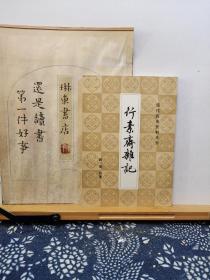 琳東書店
還是讀書
第一件好事
清代史料筆記叢刊
行素齋雜記